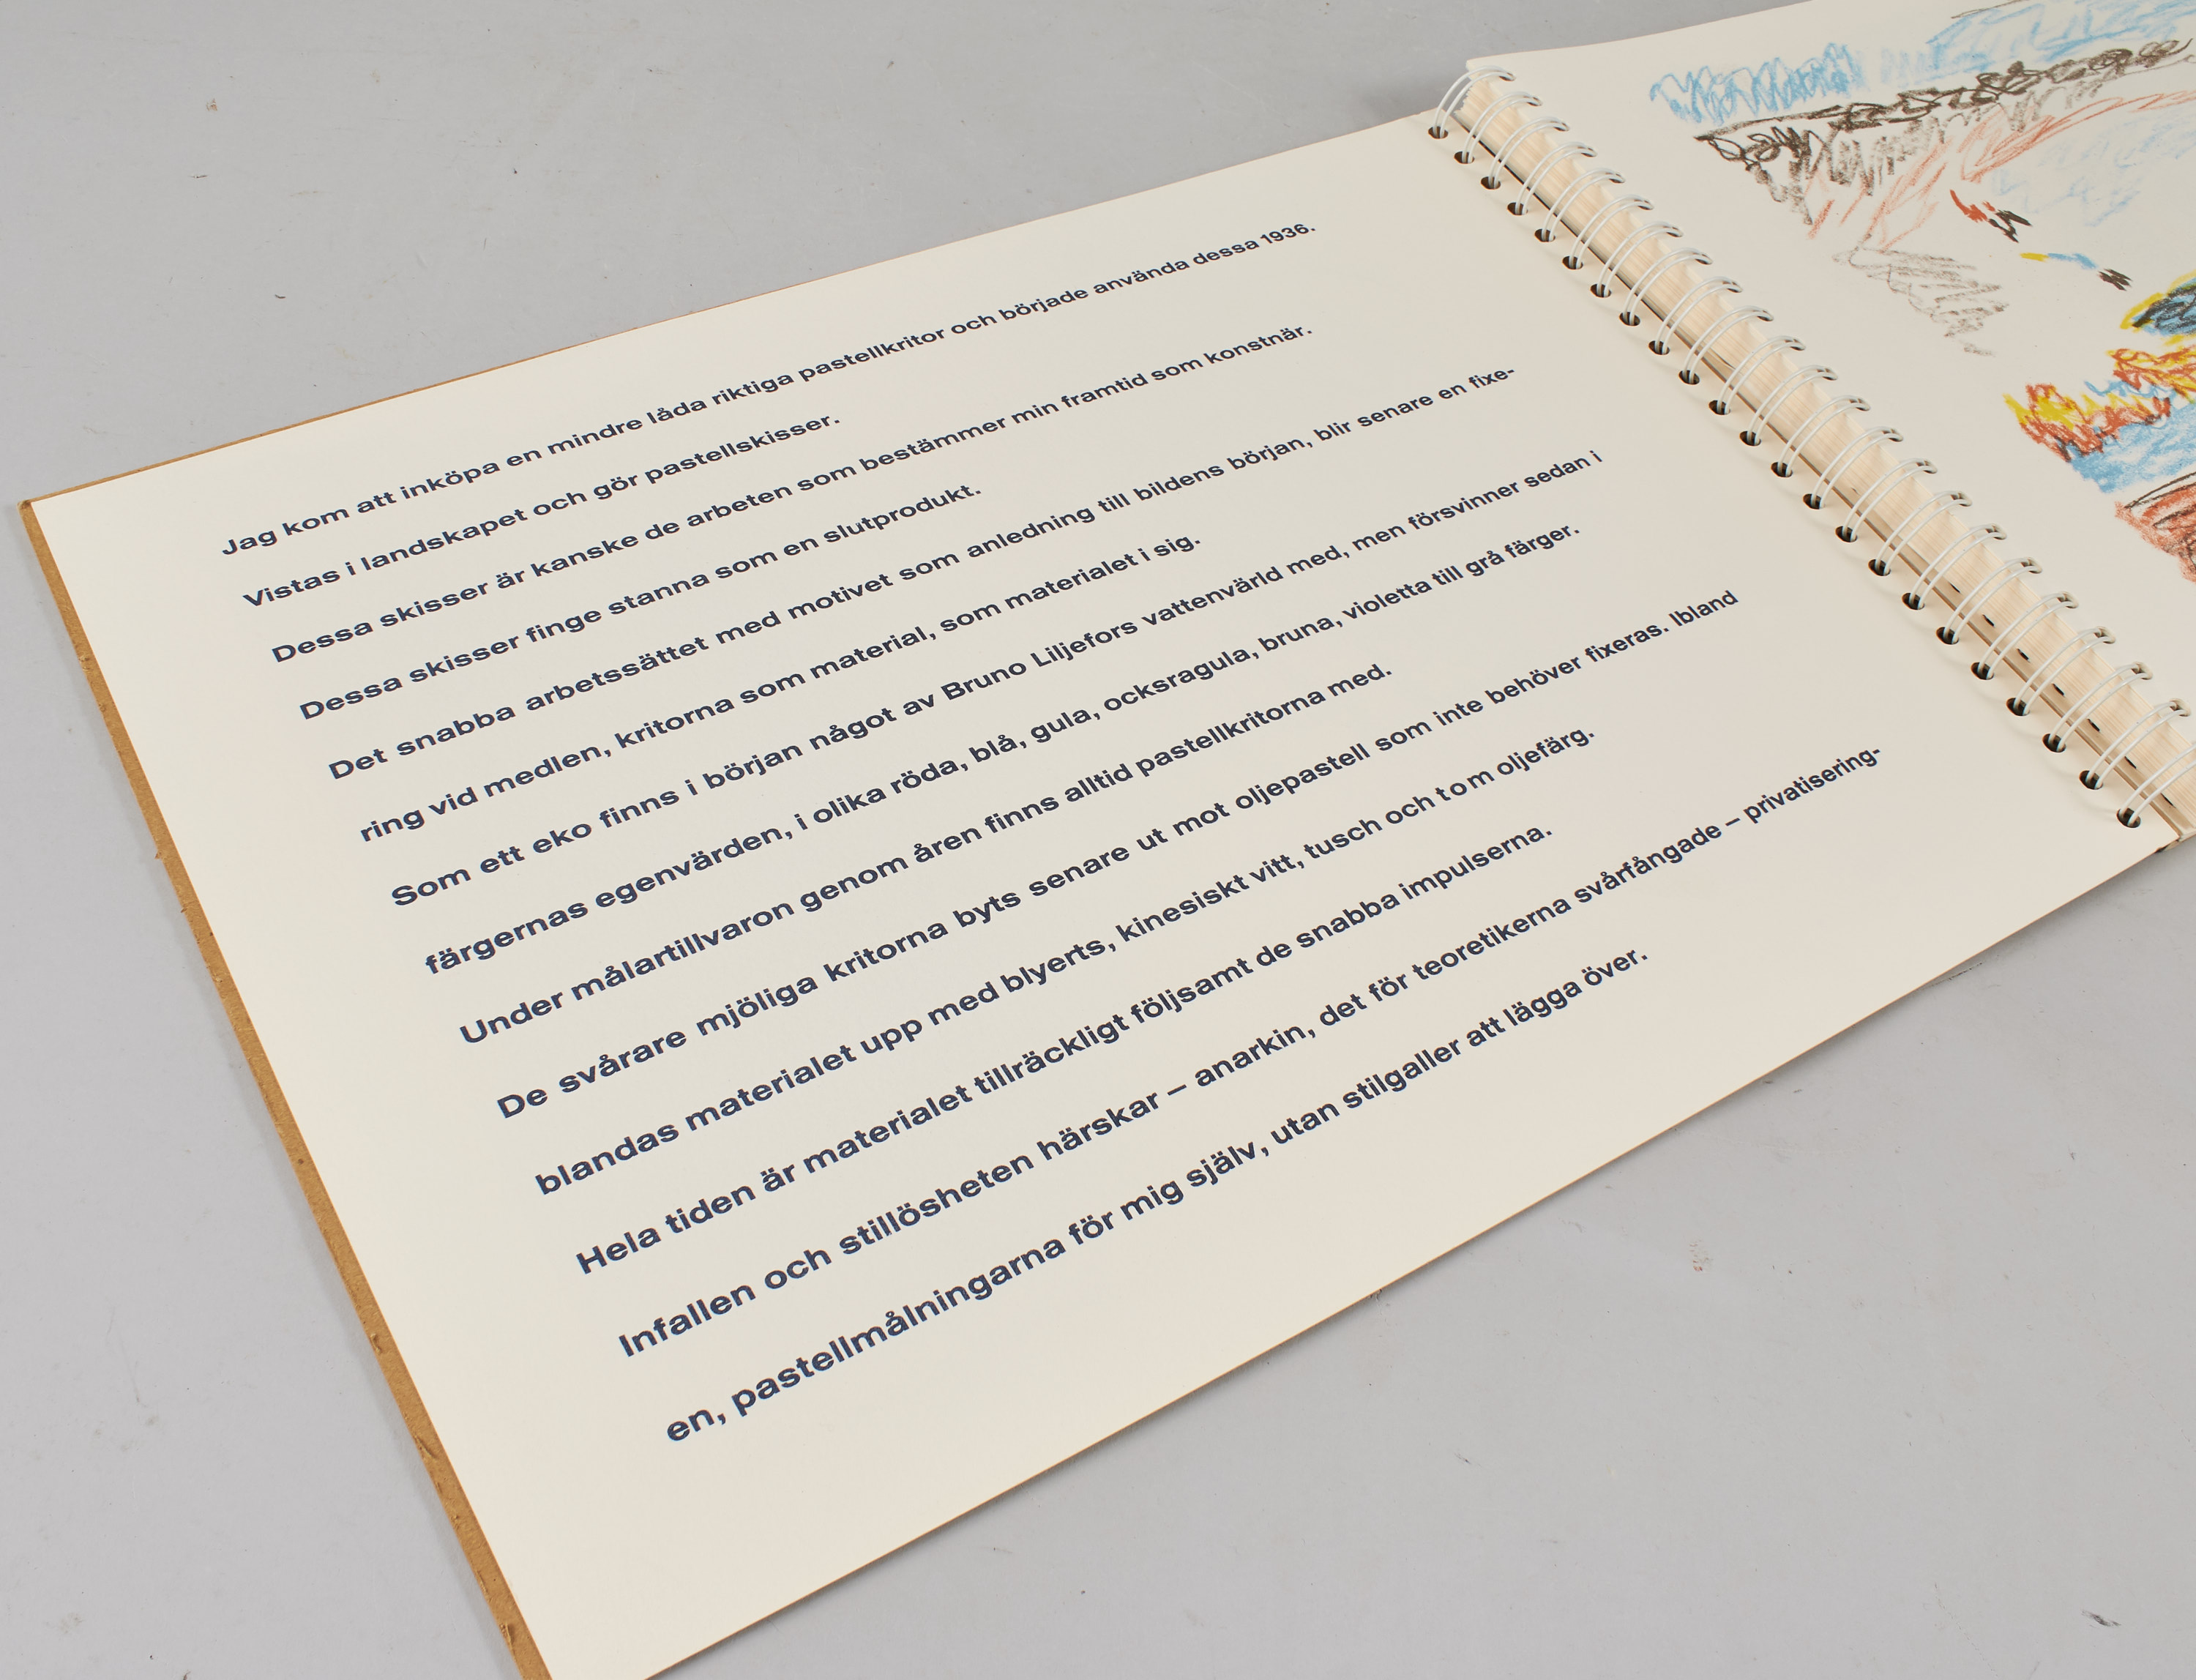 Jag kom att inköpa en mindre låda riktiga pastellkritor och började använda dessa 1936.
Vistas i landskapet och gör pastellskisser.
Dessa skisser är kanske de arbeten som bestämmer min framtid som konstnär.
Dessa skisser finge stanna som en slutprodukt.
Det snabba arbetssättet med motivet som anledning till bildens början, blir senare en fixe-
ring vid medlen, kritorna som material, som materialet i sig.
Som ett eko finns i början något av Bruno Liljefors vattenvärld med, men försvinner sedan i
färgernas egenvärden, i olika röda, blå, gula, ocksragula, bruna, violetta till grå färger.
Under målartillvaron genom åren finns alltid pastellkritorna med.
De svårare mjöliga kritorna byts senare ut mot oljepastell som inte behöver fixeras. Ibland
blandas materialet upp med blyerts, kinesiskt vitt, tusch och tom oljefärg.
Hela tiden är materialet tillräckligt följsamt de snabba impulserna.
Infallen och stillösheten härskar – anarkin, det för teoretikerna svårfångade – privatisering-
en, pastellmålningarna för mig själv, utan stilgaller att lägga över.